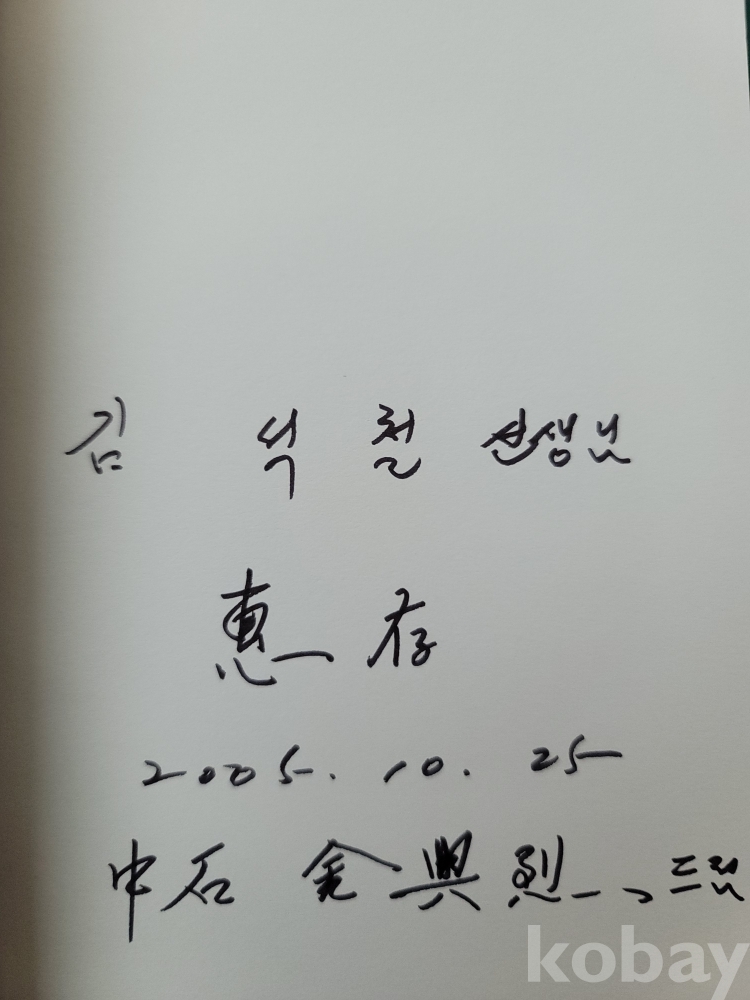 김 석철 선생님
惠存
2005. 10. 25
中石 金興烈 드림
kobay